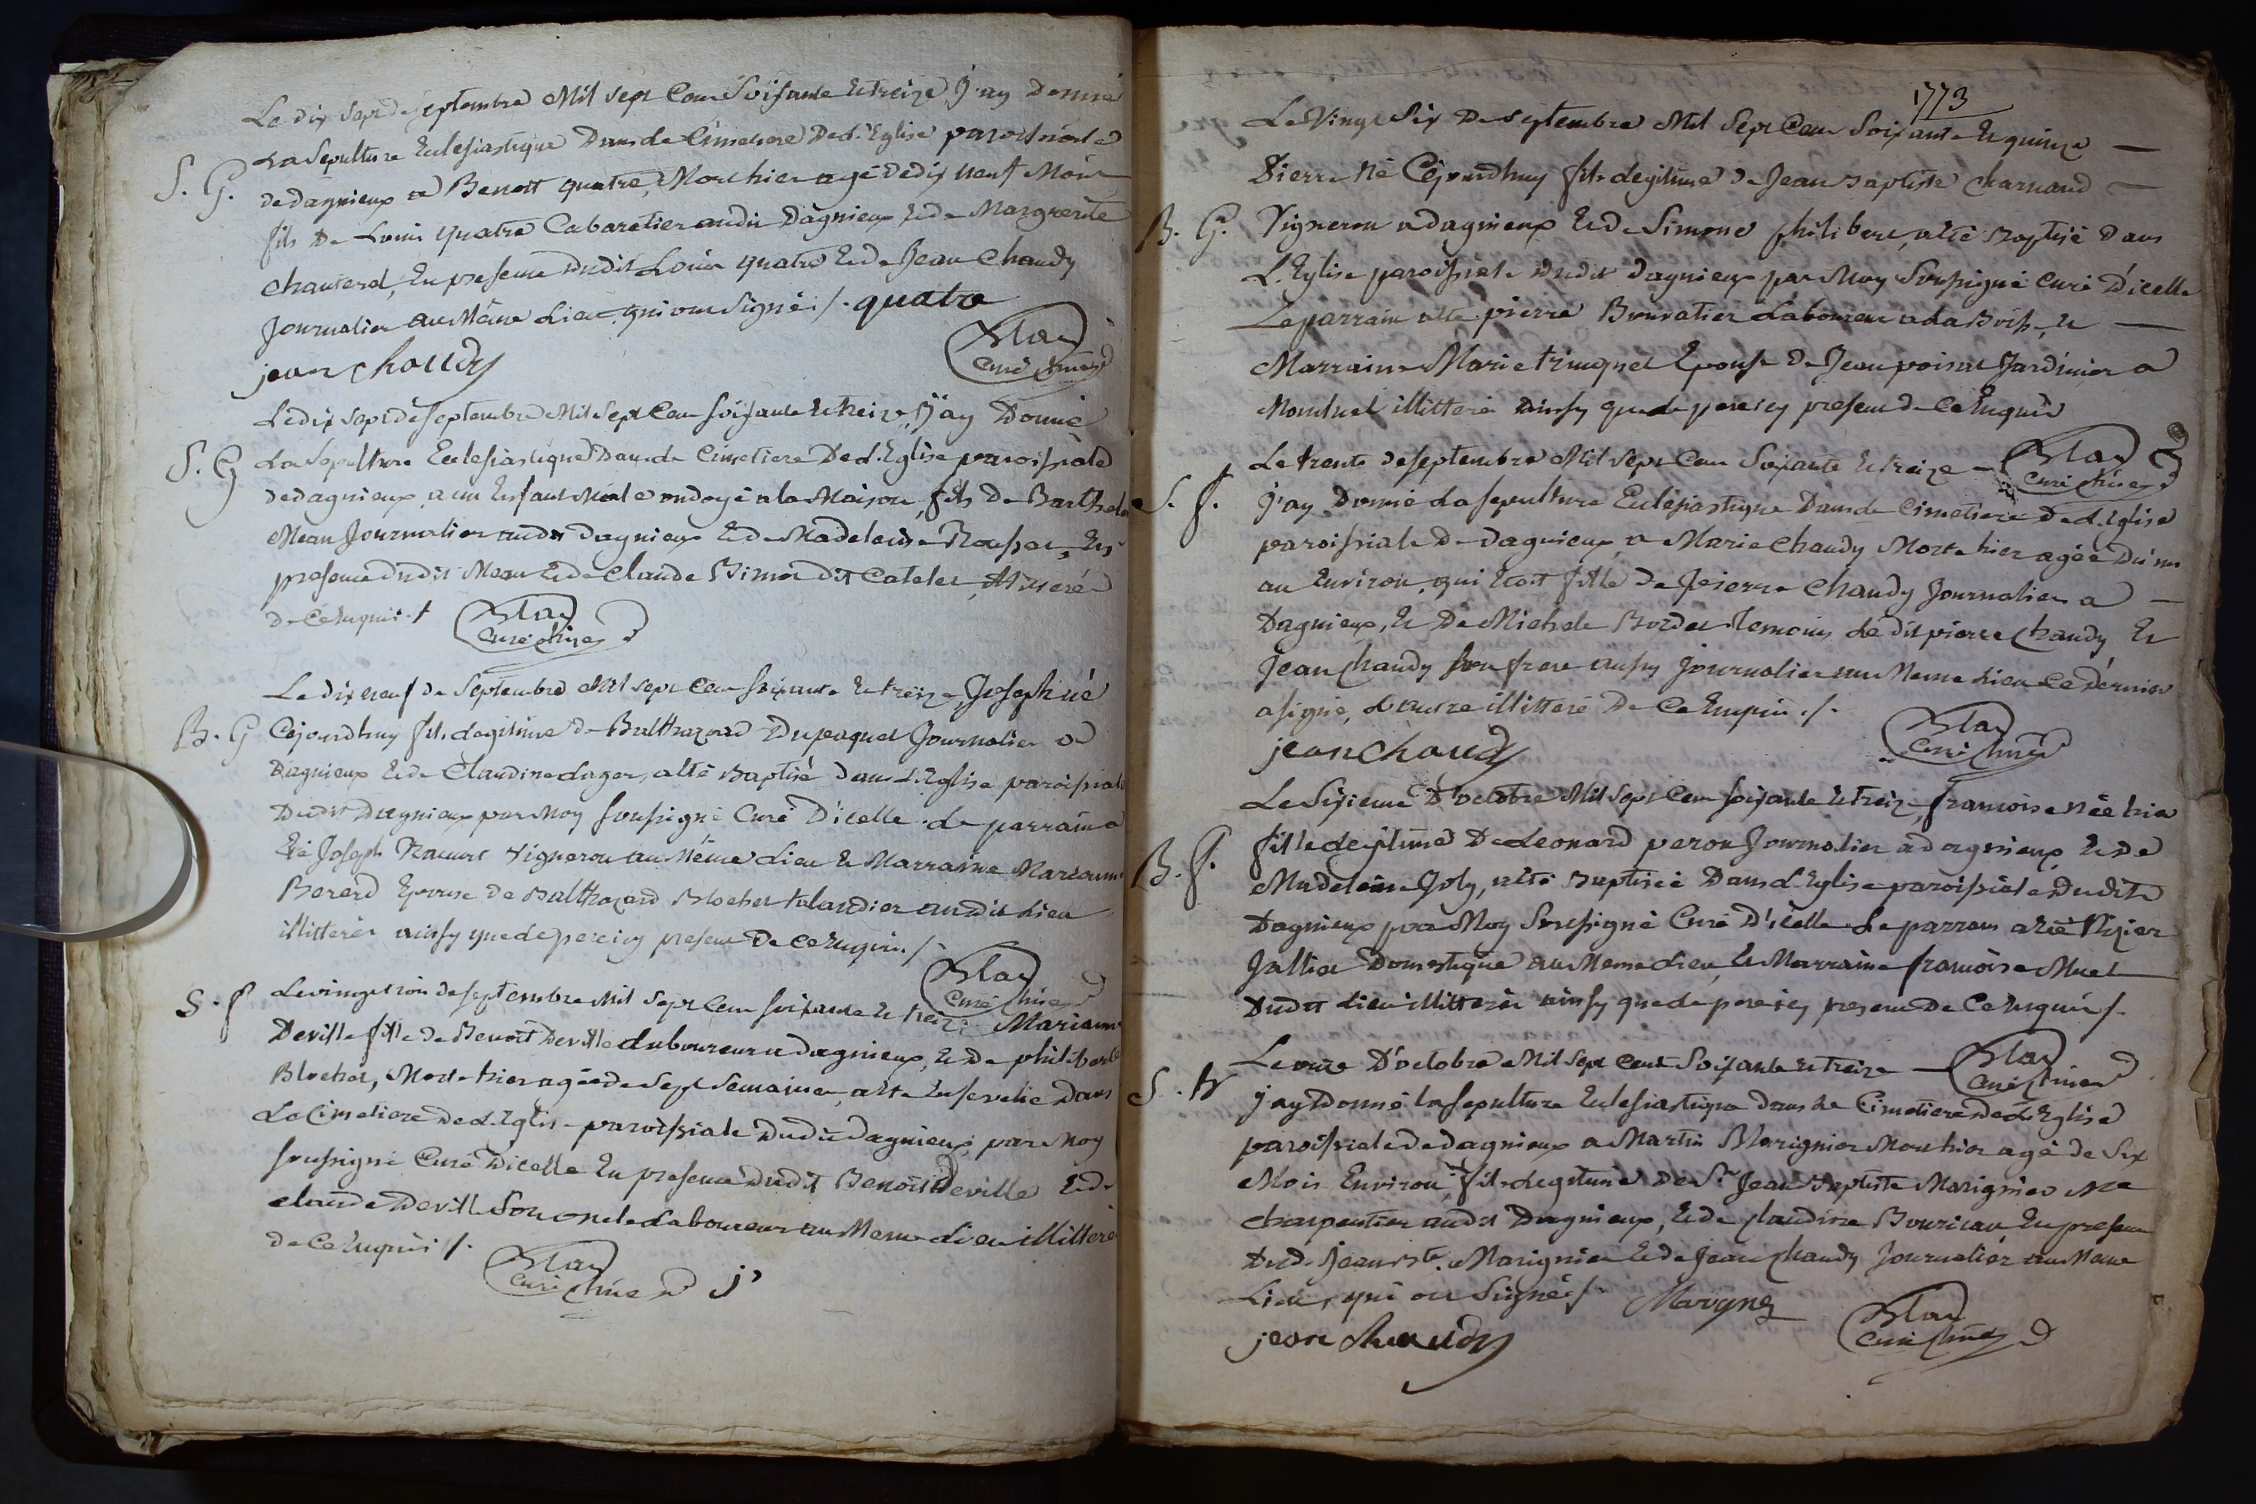 Le dix sept de septembre Mil sept Cent Soixante et treize, J'ay Donné
S. G. La sepulture Eclesiastique Dans le Cimetiere De L'Eglise paroissiale
de dagnieux a Benoit quatre, Mort hier agé de dix neuf Mois
fils De Louis quatre Cabaretier audit Dagnieux et de Marguerite
chanterel, En presence Dudit Louis quatre et de Jean Chaudy
Journalier au Même Lieu qui ont Signé ./. quatre
jean chaudy
Blay
Curé
Le dix sept de septembre Mil sept Cent soixante et treize, J'ay Donné
S. G La sepulture Eclesiastique Dans le Cimetiere De L'Eglise paroissiale
de dagnieux, a un Enfant Male ondoyé a la Maison, fils De Barthelemy
Mean Journalier audit Dagnieux et de Madeleine, En
presence dudit Mean et de Claude dit Catelet, illiteré
de Ce Enquis ./
Blay
Curé
Le dix neuf de Septembre Mil sept Cent soixante et treize, Joseph né
B. G Cejourdhuy fils legitime de Balthazard Dupaquet Journalier a
Dagnieux et de Claudine Lager, a été Baptisé dans L'Eglise paroissiale
Dudit Dagnieux par Moy soussigné Curé D'icelle. Le parrain a
Eté Joseph vigneron au Même Lieu et Marraine Marianne
Berard Epouse de Balthazard Blochet talandier audit Lieu
illitterés ainsy que le pere icy present De Ce Enquis ./.
Blay
Curé
S. f Le vingt trois de septembre Mil sept Cent soixante et treize Marianne
Deville fille de Benoit Deville laboureur a dagnieux, et de philiberte
Blochet, Morte hier agée de Sept Semaines, a Eté Ensevelie Dans
Le Cimetiere De L'Eglise paroissiale Dudit Dagnieux, par Moy
soussigné Curé D'icelle En presence dudit Benoit Deville et de
claude Deville Son oncle Laboureur au Meme Lieu illitteré
de Ce Enquis ./.
Blay
Curé
1773
Le Vingt Six De septembre Mil Sept Cent Soixante et quinze
Pierre Né Cejourdhuy fils legitime de Jean Baptiste Charnaud
B. G. Vigneron a dagnieux et de Simone philibert, a Eté Baptisé Dans
L'Eglise paroissiale dudit dagnieux par Moy Soussigné Curé D'icelle
Le parrain a Eté pierre Bruvatier Laboureur a La Boisse, et
Marraine Marie trinquet Epouse de Jean poisat Jardinier a
Monluel illitteré ainsy que le pere icy present de Ce Enquis
Blay
Curé
Le trente de septembre Mil sept Cent Soixante et treize
S. f. J'ay Donné La sepulture Eclesiastique Dans le Cimetiere De L'Eglise
paroissiale De Dagnieux, a Marie Chaudy Morte hier agée D'un
an Environ, qui Etoit fille de pierre Chaudy Journalier a
Dagnieux, et De Michele Bordet. Temoins Le dit pierre Chaudy et
Jean Chaudy son frere aussy Journalier au Meme Lieu Ce dernier
a signé, L'autre illitteré De Ce Enquis ./.
jean chaudy
Blay
Curé
Le Sixieme D'octobre Mil sept Cent soixante et treize, francoise Née hier
B. f. fille legitime De Leonard peron Journalier a dagnieux et De
Madeleine Joly, a été Baptisée Dans L'Eglise paroissiale Dudit
Dagnieux par Moy Soussigné Curé D'icelle Le parrain a Eté
Jallier Domestique au Meme Lieu et Marraine francoise Muet
Dudit Lieu illitterés ainsy que le pere icy present De Ce Enquis ./.
Blay
Curé
Le onze D'octobre Mil sept Cent Soixante et treize
S. J'ay Donné la sepulture Eclesiastique Dans Le Cimetiere De L'Eglise
paroissiale de dagnieux a Martin Marignier Mort hier agé de Six
Mois Environ, fils legitime De Sr Jean Baptiste Marignier Me
charpentier audit Dagnieux, et de Claudine En presence
Dud. Jean Bte. Marignier et de Jean Chaudy Journalier au Meme
Lieu, qui ont Signé ./. Marigny
jean chaudy
Blay
Curé